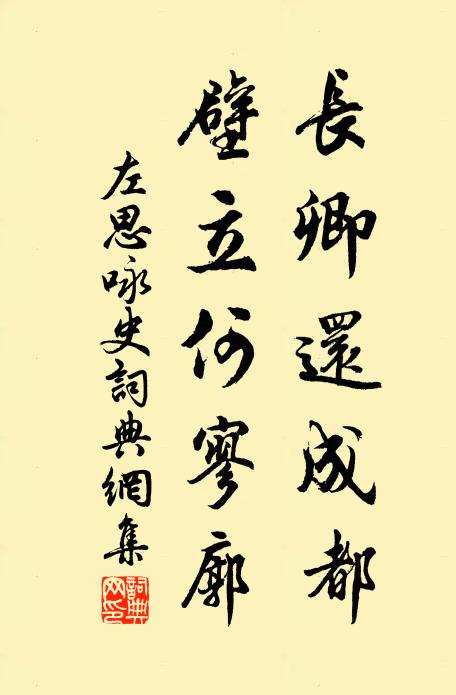 長卿還成都
壁立何寥廓
左思咏史詞典網集
詞典网印